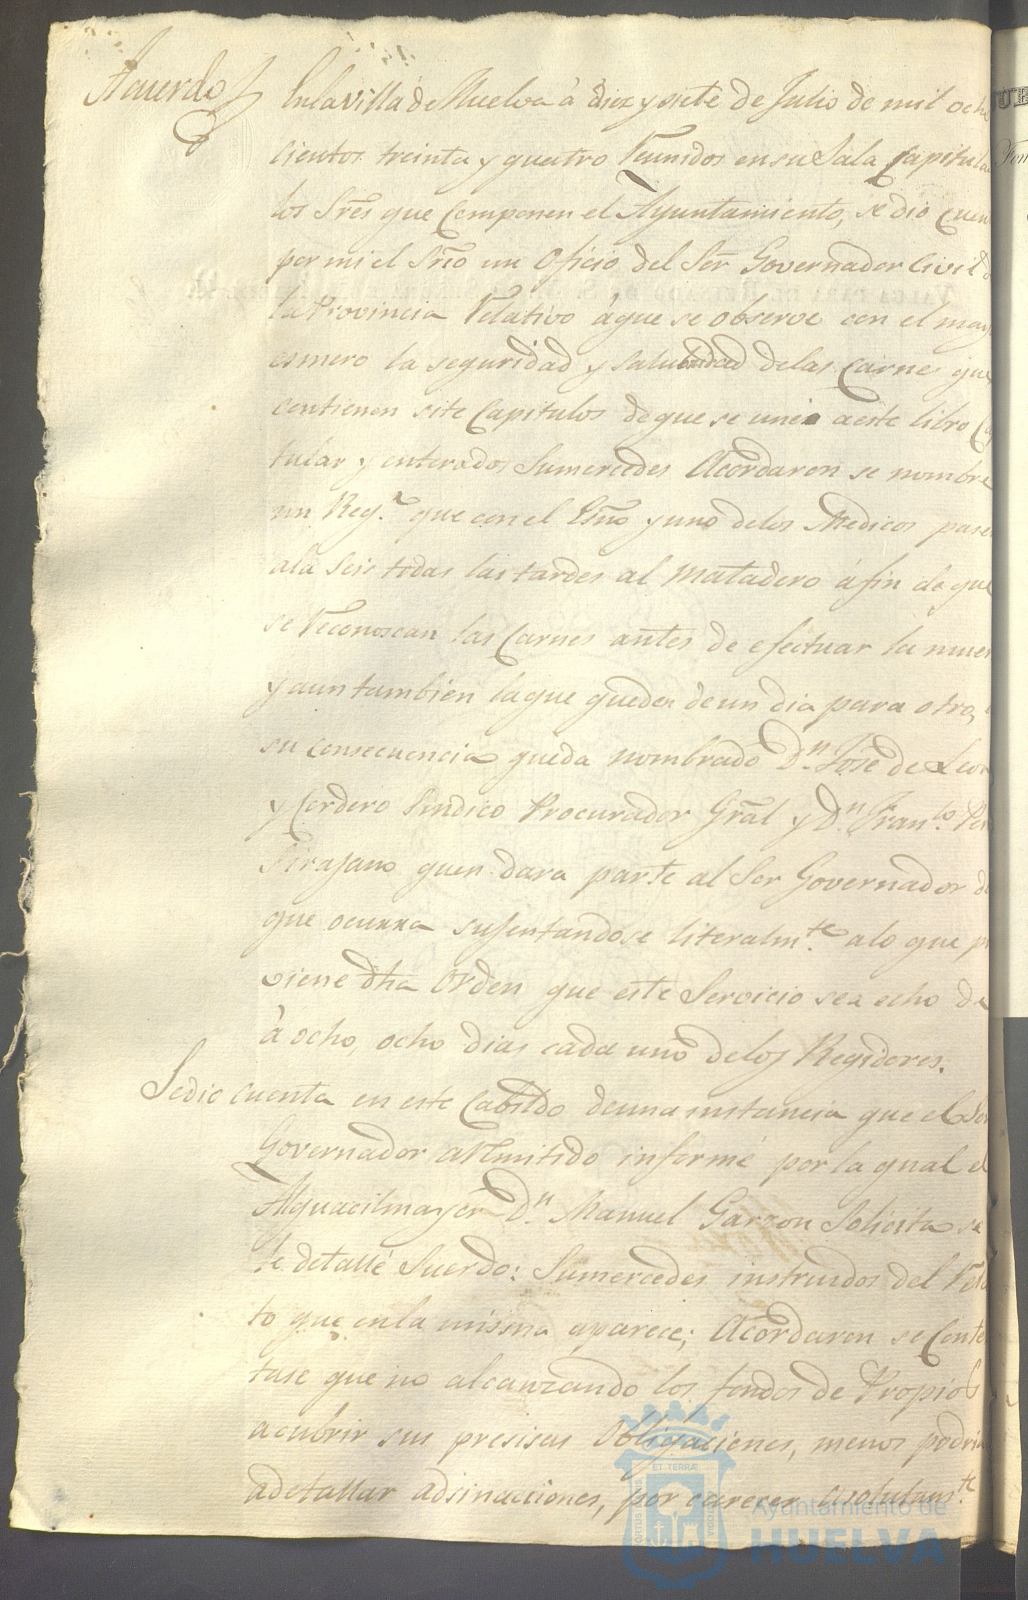 Acuerdo
En la villa de Huelva à diez y siete de Julio de mil ocho
cientos treinta y quatro Reunidos en su Sala Capitula
los Sres que Componen el Ayuntamiento, se dio Cuen
por mi el Srio un Oficio del Ser Governador Civil d
la Provincia Relativo àque se observe con el may
esmero la seguridad y salubridad delas Carnes que
contienen siete Capitulos deque se unió aeste libro Ca
tular y enterados Sumercedes Acordaron se nombre
un Reg.r que con el Esno y uno delos Medicos pase
ala Seis todas las tardes al Matadero à fin de que
se Reconoscan las Carnes antes de efectuar la muer
y aun tambien la que queden de un dia para otro,
su consecuencia queda nombrado D.n José de Leon
y Cordero Sindico Procurador Gral y D.n Fran.co Per
Tirajano quen dara parte al Ser Governador d
que ocurra sujentandose literalm.te alo que p
viene dha Orden que este Servicio sea echo de
à ocho, ocho dias cada uno delos Regidores.
Se dio cuenta en este Cabildo de una instancia que el Ser
Governador a Remitido informé por la qual el
Alguacil mayor D.n Manuel Garzon Solicita se
le detallé Sueldo: Sumercedes instruidos del Rela
to que en la misma aparece; Acordaron se Conte
tase que no alcanzando los fondos de Propios
a cubrir sus presisas Obligaciones, menos podria
a detallar adsinaciones, por carecer absolutam.te
ET TERRÆ
Ayuntamiento de
HUELVA